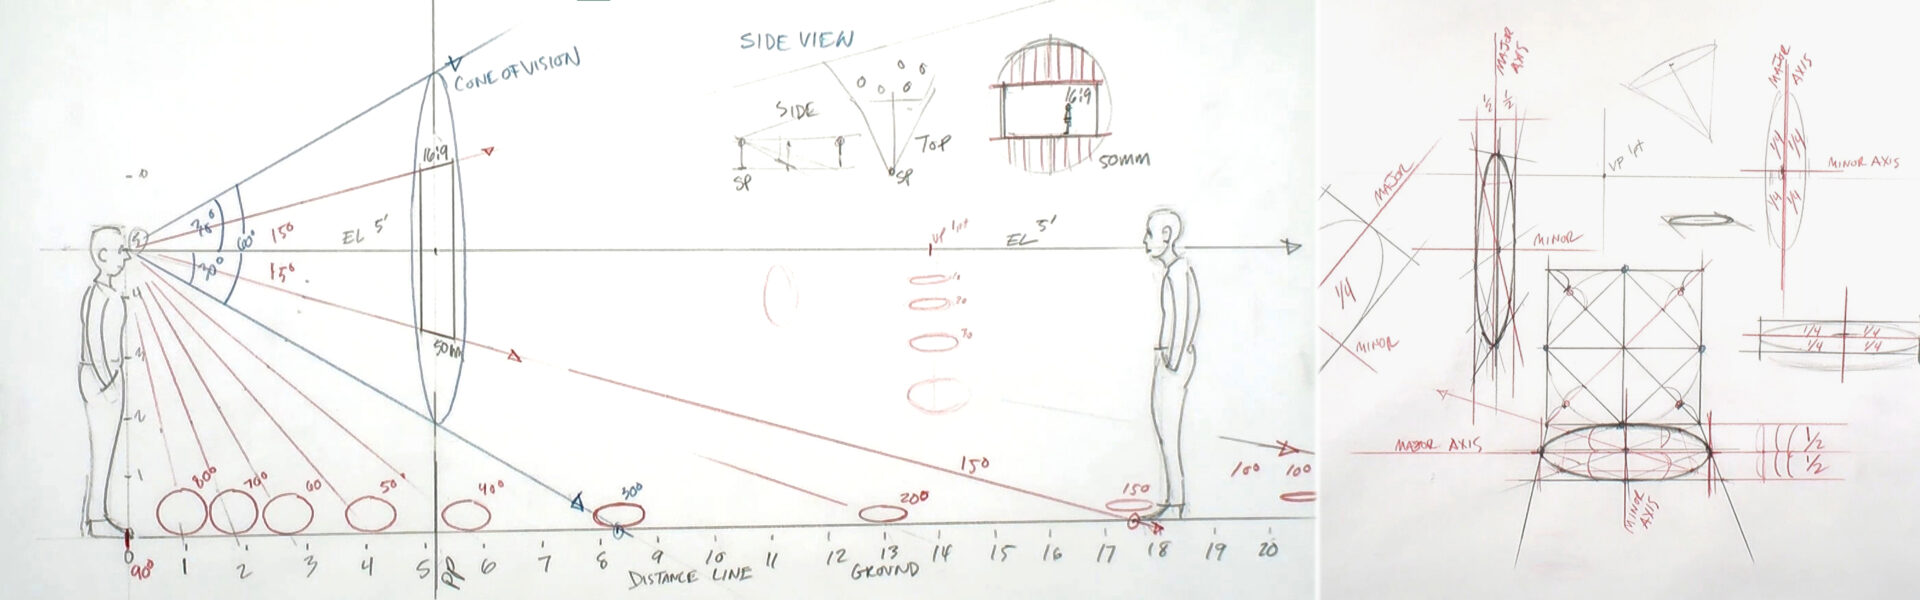 SIDE VIEW
CONE OF VISION
SIDE
SP
TOP
SP
16:9
50mm
16:9
50mm
60°
30°
15°
15°
EL 5'
VP 1pt
EL 5'
4
3
2
1
80°
70°
60
50°
40°
30°
20°
15°
15°
10°
10°
0
90°
1
2
3
4
5
PP
6
7
8
9
10
11
12
13
14
15
16
17
18
19
20
DISTANCE LINE
GROUND
MAJOR AXIS
1/2
1/2
MINOR
VP 1pt
MAJOR AXIS
MINOR AXIS
1/4
1/4
1/4
1/4
MAJOR
1/4
MINOR
1/4
1/4
1/4
1/4
MAJOR AXIS
MINOR AXIS
1/2
1/2